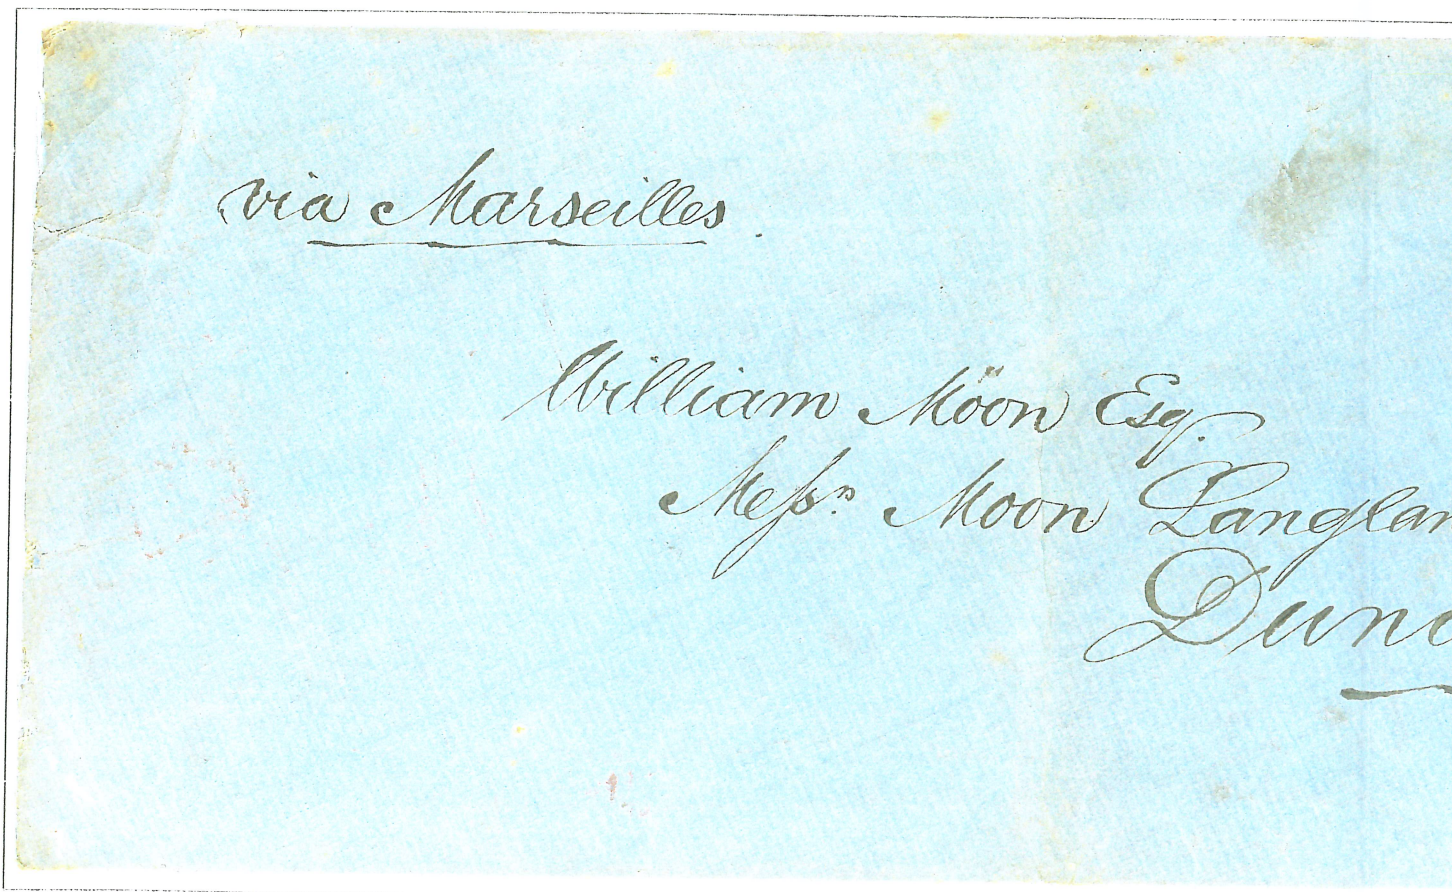 via Marseilles.
William Möon Esq.
Meſsrs Moon Langlan
Dund